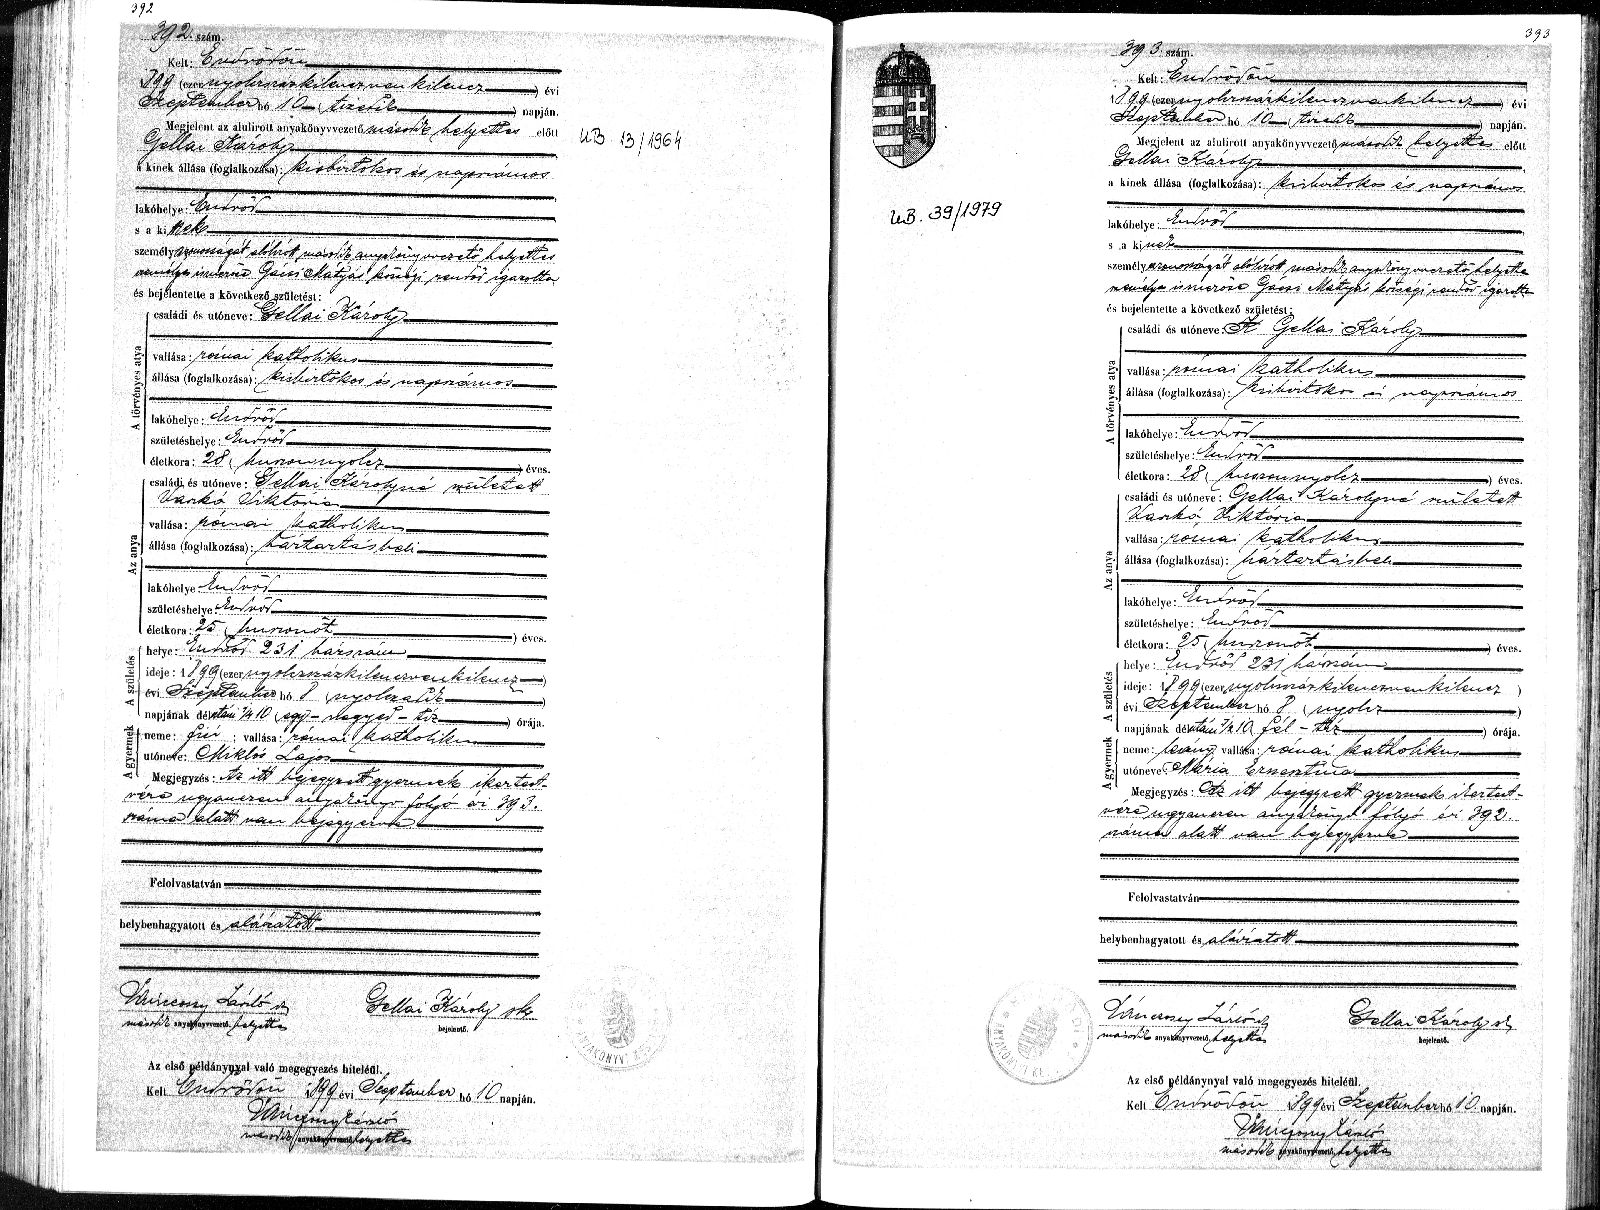 392
392. szám.
Kelt: Endrődön
1899 (ezernyolczszázkilenczvenkilencz) évi
Szeptember hó 10 (tizedik) napján.
Megjelent az alulirott anyakönyvvezető második helyettes előtt
Gellai Károly
a kinek állása (foglalkozása): kisbirtokos és napszámos
lakóhelye: Endrőd
s a kinek
személyazonosságát alólirott második anyakönyvvezető helyettes
személyes ismerőse Gácsi Mátyás községi rendőr igazolta
és bejelentette a következő születést:
A törvényes atya
családi és utóneve: Gellai Károly
vallása: római katholikus
állása (foglalkozása): kisbirtokos és napszámos
lakóhelye: Endrőd
születéshelye: Endrőd
életkora: 28 (huszonnyolcz) éves.
Az anya
családi és utóneve: Gellai Károlyné született
Vaskó Viktória
vallása: római katholikus
állása (foglalkozása): háztartásbeli
lakóhelye: Endrőd
születéshelye: Endrőd
életkora: 25 (huszonöt) éves.
A születés
helye: Endrőd 231 házszám
ideje: 1899 (ezernyolczszázkilenczvenkilencz)
évi Szeptember hó 8 (nyolczadik)
napjának délutáni 1/4 10 (egy-negyed-tíz) órája.
A gyermek
neme: fiú; vallása: római katholikus
utóneve: Miklós Lajos
Megjegyzés: Az itt bejegyzett gyermek ikertest-
vére ugyanezen anyakönyv folyó évi 393.
száma alatt van bejegyezve
Felolvastatván
helybenhagyatott és aláíratott
László
második anyakönyvvezető helyettes
Gellai Károly sk
bejelentő.
Az első példánynyal való megegyezés hiteléül.
Kelt Endrődön 1899 évi Szeptember hó 10 napján.
László
második anyakönyvvezető helyettes
UB 13/1964
393
393. szám.
Kelt: Endrődön
1899 (ezernyolczszázkilenczvenkilencz) évi
Szeptember hó 10 (tizedik) napján.
Megjelent az alulirott anyakönyvvezető második helyettes előtt
Gellai Károly
a kinek állása (foglalkozása): kisbirtokos és napszámos
lakóhelye: Endrőd
s a kinek
személyazonosságát alólirott második anyakönyvvezető helyettes
személyes ismerőse Gácsi Mátyás községi rendőr igazolta
és bejelentette a következő születést:
A törvényes atya
családi és utóneve: Gellai Károly
vallása: római katholikus
állása (foglalkozása): kisbirtokos és napszámos
lakóhelye: Endrőd
születéshelye: Endrőd
életkora: 28 (huszonnyolcz) éves.
Az anya
családi és utóneve: Gellai Károlyné született
Vaskó Viktória
vallása: római katholikus
állása (foglalkozása): háztartásbeli
lakóhelye: Endrőd
születéshelye: Endrőd
életkora: 25 (huszonöt) éves.
A születés
helye: Endrőd 231 házszám
ideje: 1899 (ezernyolczszázkilenczvenkilencz)
évi Szeptember hó 8 (nyolcz)
napjának délutáni 1/2 10 (fél-tíz) órája.
A gyermek
neme: leány; vallása: római katholikus
utóneve: Mária Ernesztina
Megjegyzés: Az itt bejegyzett gyermek ikertest-
vére ugyanezen anyakönyv folyó évi 392.
száma alatt van bejegyezve
Felolvastatván
helybenhagyatott és aláíratott
László
második anyakönyvvezető helyettes
Gellai Károly sk
bejelentő.
Az első példánynyal való megegyezés hiteléül.
Kelt Endrődön 1899 évi Szeptember hó 10 napján.
László
második anyakönyvvezető helyettes
UB. 39/1979